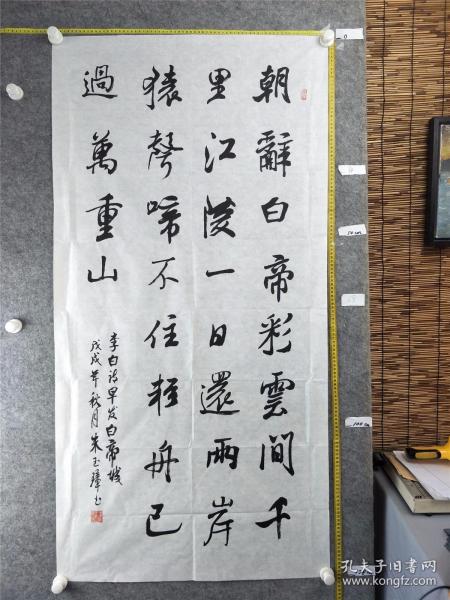 朝辭白帝彩雲間千
里江陵一日還兩岸
猿聲啼不住輕舟已
過萬重山
李白诗早发白帝城
戊戌年秋月朱玉璋书
孔夫子旧书网
www.kongfz.com